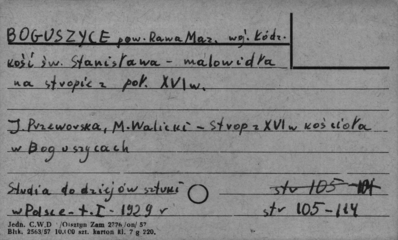 BOGUSZYCE pow. Rawa Maz. woj. Łódz.
Kość św. Stanisława - malowidła
na stropie z poł. XVI w.
J. Przeworska, M. Walicki - Strop z XVI w kościoła
w Boguszycach
Studia do dziejów sztuki str 105-114
w Polsce - t. I - 1929 r str 105-114
Jedn. C.W.D /Olsztyn Zam 2776 /on/ 57
Błsk. 2563/57 10.000 szt. karton kl. 7 g 220.